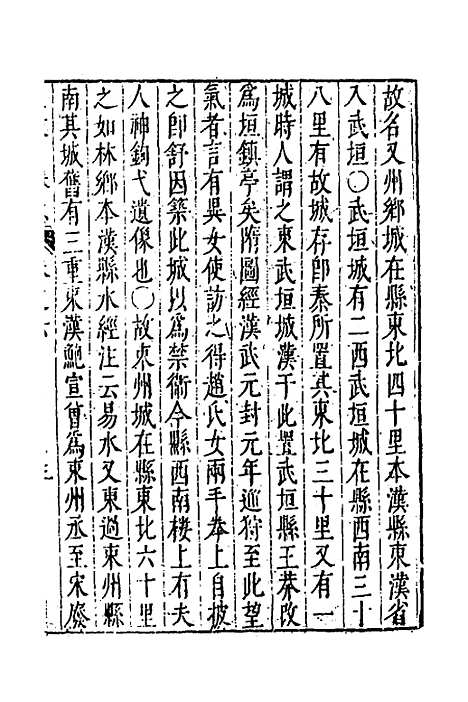 故名又州鄉城在縣東北四十里本漢縣東漢省
入武垣〇武垣城有二西武垣城在縣西南三十
八里有故城存即秦所置其東北三十里又有一
城時人謂之東武垣城漢于此置武垣縣王莽改
爲垣鎮亭矣隋圖經漢武元封元年巡狩至此望
氣者言有異女使訪之得趙氏女兩手拳上自披
之即舒因築此城以爲禁衛今縣西南樓上有夫
人神鉤弋遺像也〇故束州城在縣東北六十里
之如林鄉本漢縣水經注云易水又東過束州縣
南其城舊有三重東漢鮑宣曾爲束州丞至宋廢